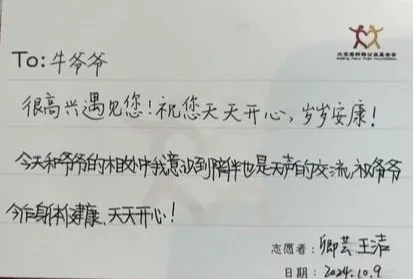 To: 牛爷爷
很高兴遇见您!祝您天天开心,岁岁安康!
今天和爷爷的相处中我意识到陪伴也是无声的交流,祝爷爷
今后身体健康、天天开心!
志愿者:卿芸 王洁
日期:2024.10.9